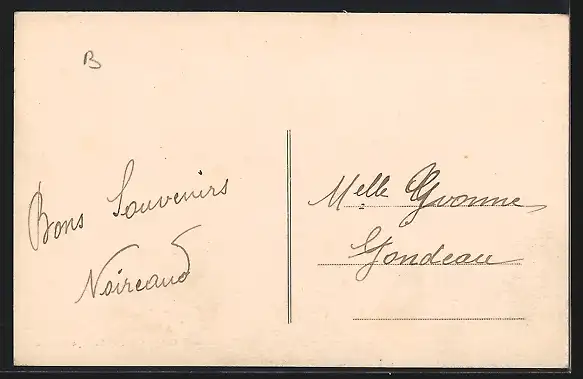 B
Bons Souvenirs
Noireaud
Melle Yvonne
Gondeau